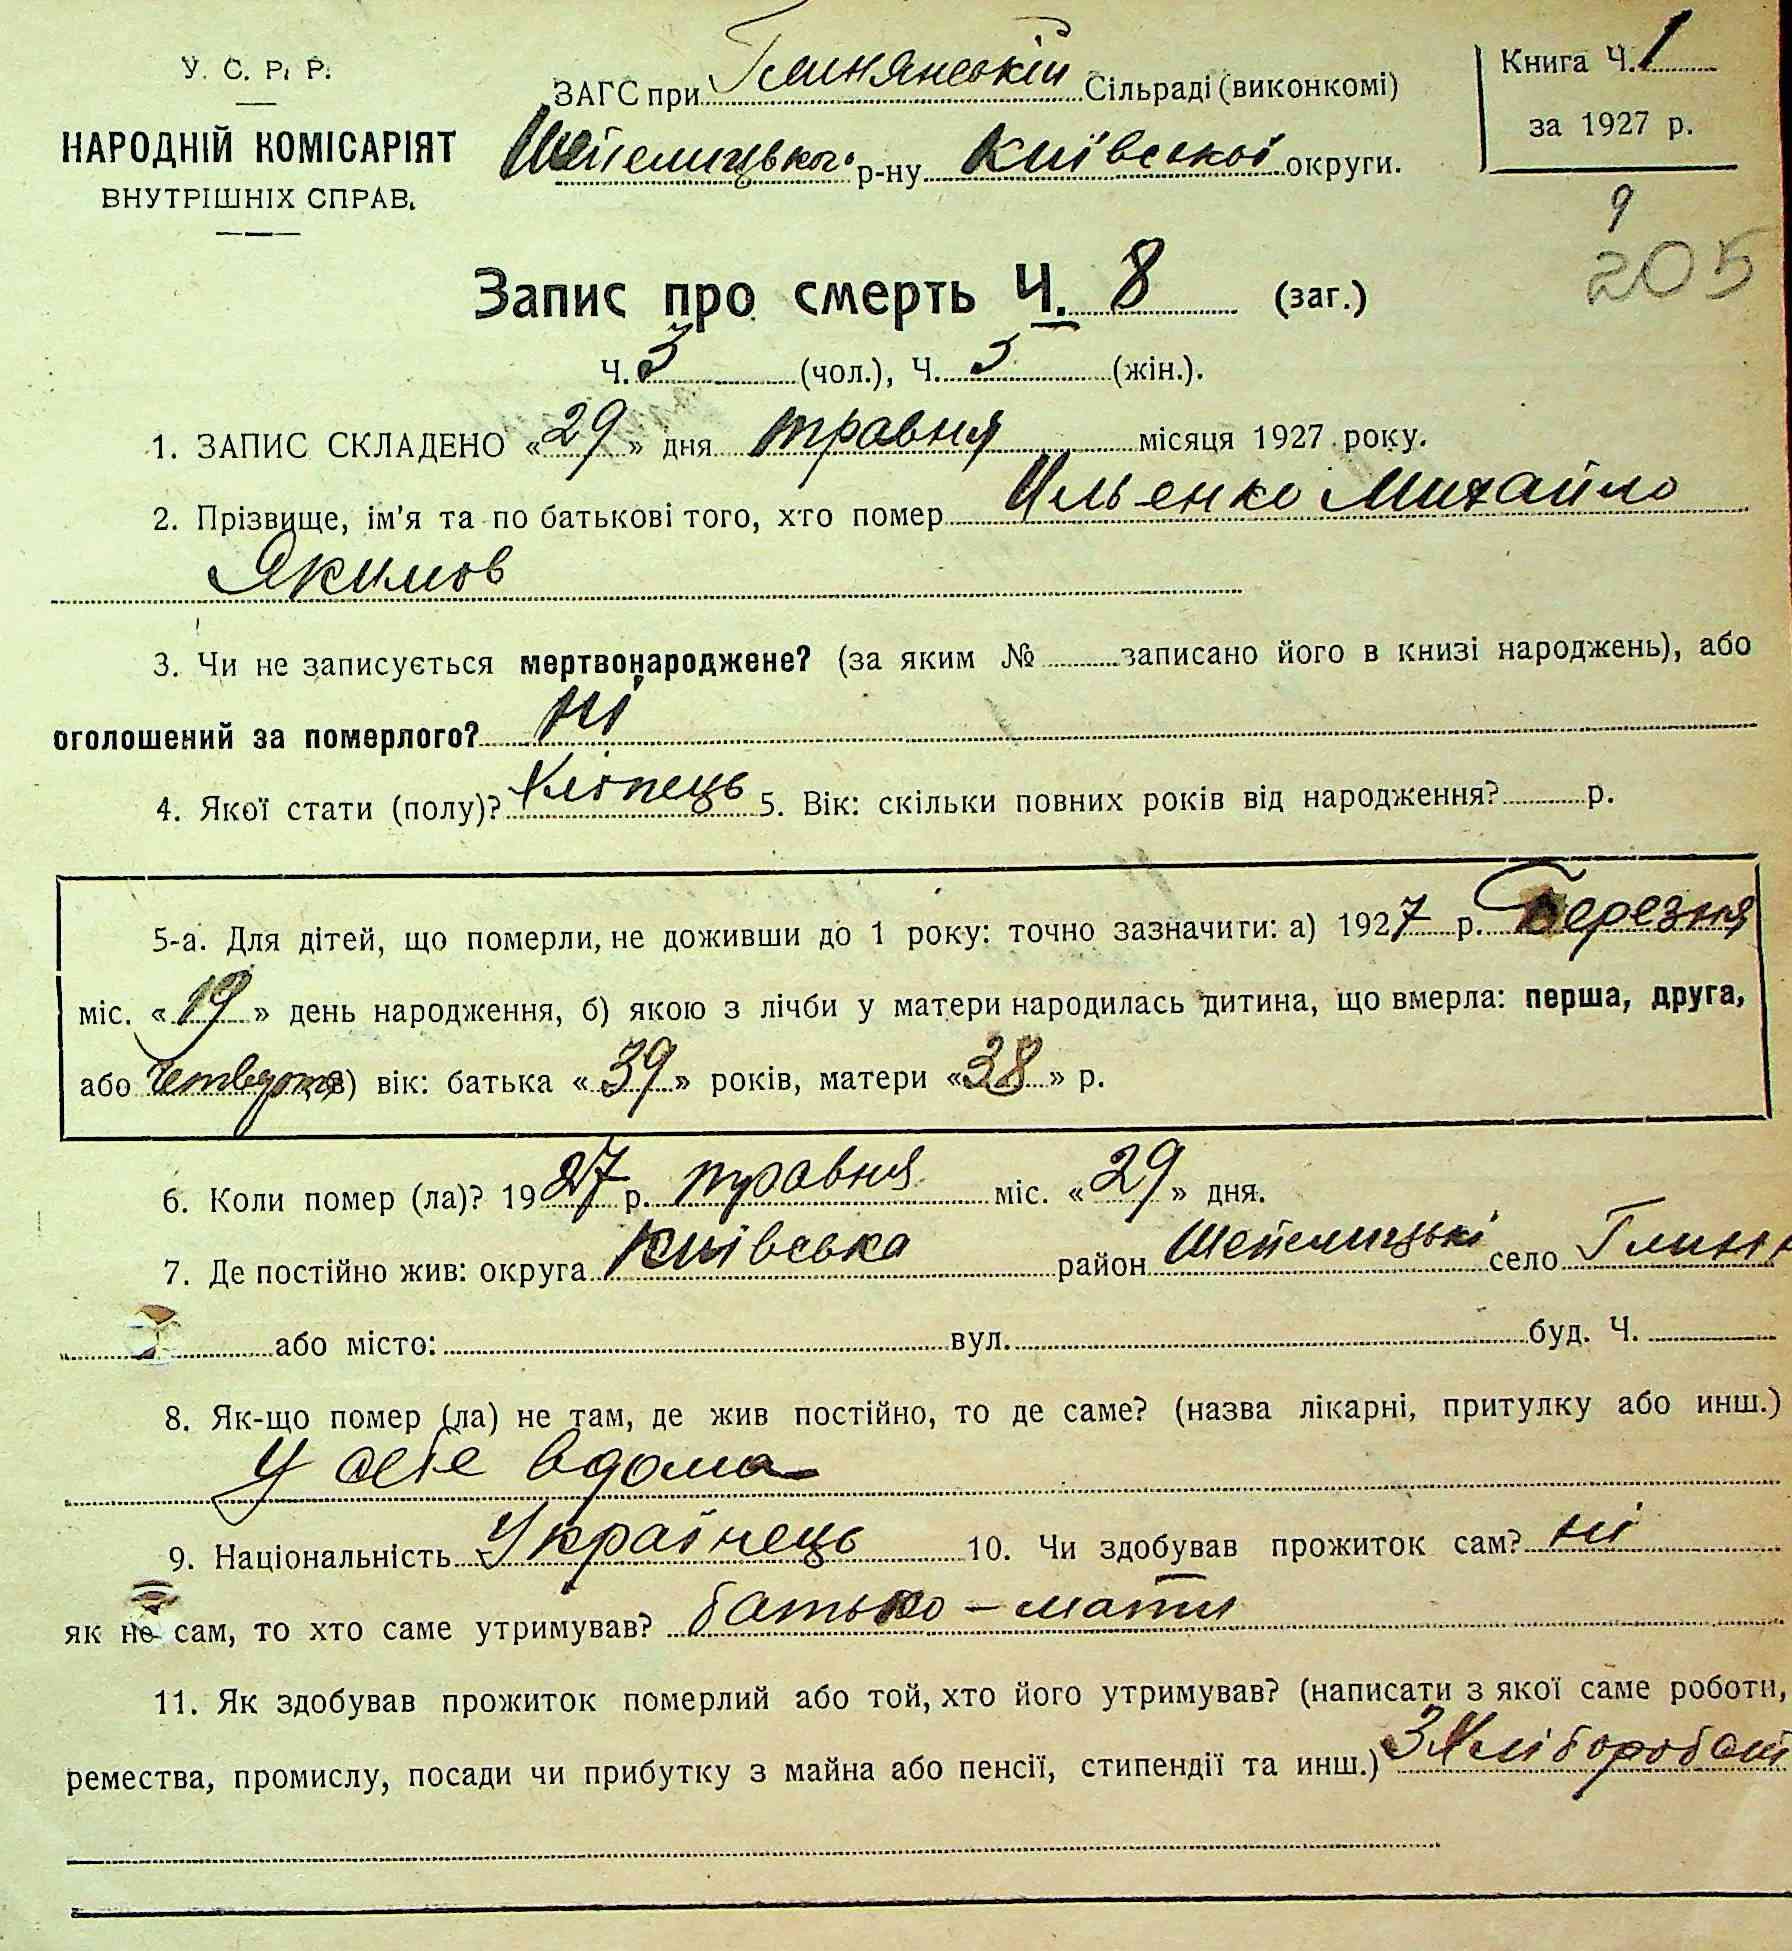 У. С. Р. Р.
НАРОДНІЙ КОМІСАРІЯТ
ВНУТРІШНІХ СПРАВ.
ЗАГС при Глинянській Сільраді (виконкомі)
Шепелицького р-ну Київської округи.
Книга Ч. 1
за 1927 р.
9
205
Запис про смерть Ч. 8 (заг.)
Ч. 3 (чол.), Ч. 5 (жін.).
1. ЗАПИС СКЛАДЕНО «29» дня травня місяця 1927 року.
2. Прізвище, ім'я та по батькові того, хто помер Ильенко Михайло
Якимов
3. Чи не записується мертвонароджене? (за яким № записано його в книзі народжень), або
оголошений за померлого? ні
4. Якої стати (полу)? Хлопець 5. Вік: скільки повних років від народження? р.
5-а. Для дітей, що померли, не доживши до 1 року: точно зазначити: а) 1927 р. Березня
міс. «19» день народження, б) якою з лічби у матери народилась дитина, що вмерла: перша, друга,
або четверта в) вік: батька «39» років, матери «38» р.
6. Коли помер (ла)? 1927 р. травня міс. «29» дня.
7. Де постійно жив: округа Київська район Шепелицькі село Глинк
або місто: вул. буд. Ч.
8. Як-що помер (ла) не там, де жив постійно, то де саме? (назва лікарні, притулку або инш.)
У себе вдома
9. Національність Українець 10. Чи здобував прожиток сам? ні
як не сам, то хто саме утримував? батько – мати
11. Як здобував прожиток померлий або той, хто його утримував? (написати з якої саме роботи,
ремества, промислу, посади чи прибутку з майна або пенсії, стипендії та инш.) З Хліборобст